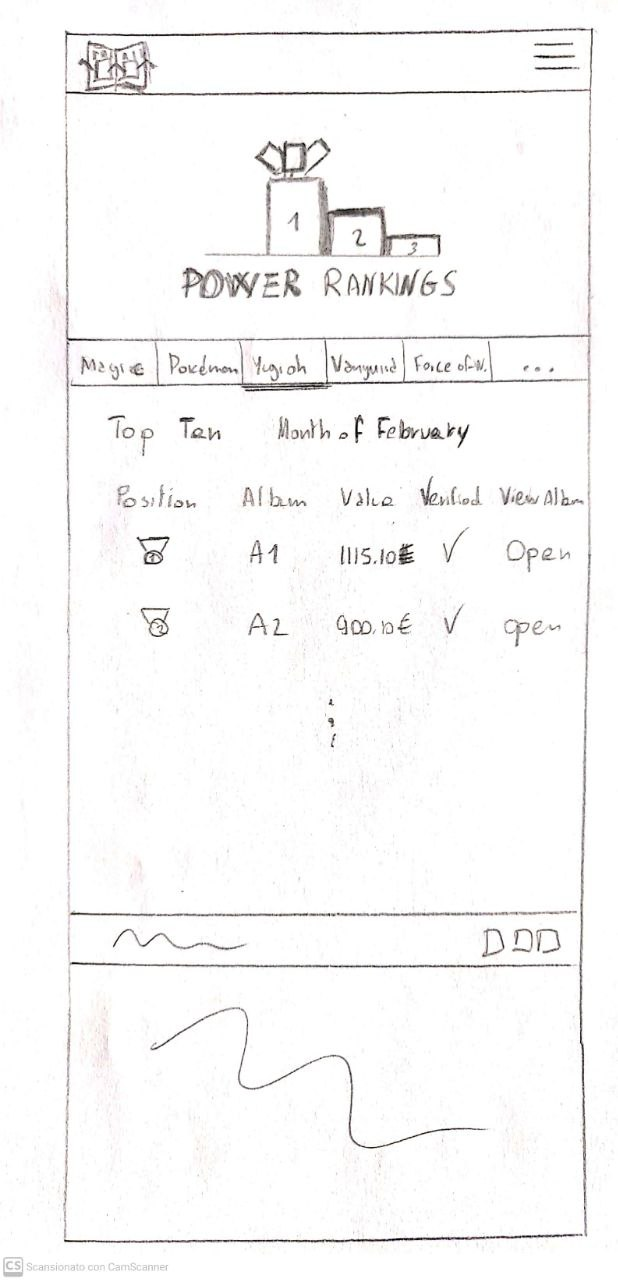 1
2
3
POWER RANKINGS
Magic Pokémon Yugioh Vanguard Force of W. ...
Top Ten Month of February
Position Album Value Verified View Album
1 A1 1115.10€ Open
2 A2 900.10€ open
CS Scansionato con CamScanner